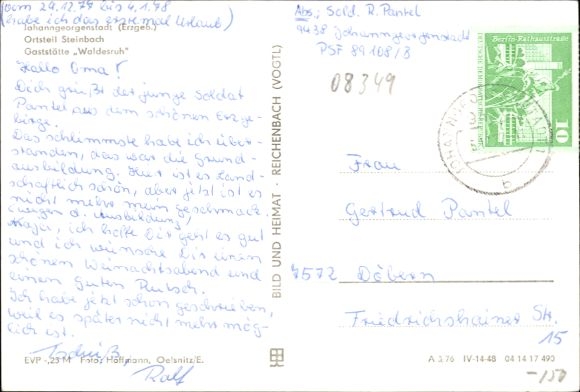 (vom 29.12.77 bis 4.1.78
habe ich das erste mal Urlaub)
Johanngeorgenstadt (Erzgeb.)
Ortsteil Steinbach
Gaststätte „Waldesruh"
Hallo Oma!
Dich grüßt der junge Soldat
Pantel aus dem schönen Erzge-
birge.
Das schlimmste habe ich über-
standen, das war die Grund-
ausbildung. Hier ist es land-
schaftlich schön, aber jetzt ist es
nicht mehr mein Geschmack.
(wegen d. Ausbildung)
Naja, ich hoffe Dir geht es gut
und ich wünsche Dir einen
schönen Weihnachtsabend und
einen guten Rutsch.
Ich habe jetzt schon geschrieben,
weil es später nicht mehr mög-
lich ist.
Tschüß
Ralf
EVP -,23 M Foto: Hoffmann, Oelsnitz/E.
BILD UND HEIMAT · REICHENBACH (VOGTL)
Abs.: Sold. R. Pantel
9438 Johanngeorgenstadt
PSF 89108/B
08349
Berlin-Rathausstraße
10
Frau
Gertrud Pantel
7572 Döbern
Friedrichshainer Str.
15
A 3/76 IV-14-48 04 14 17 490
-150